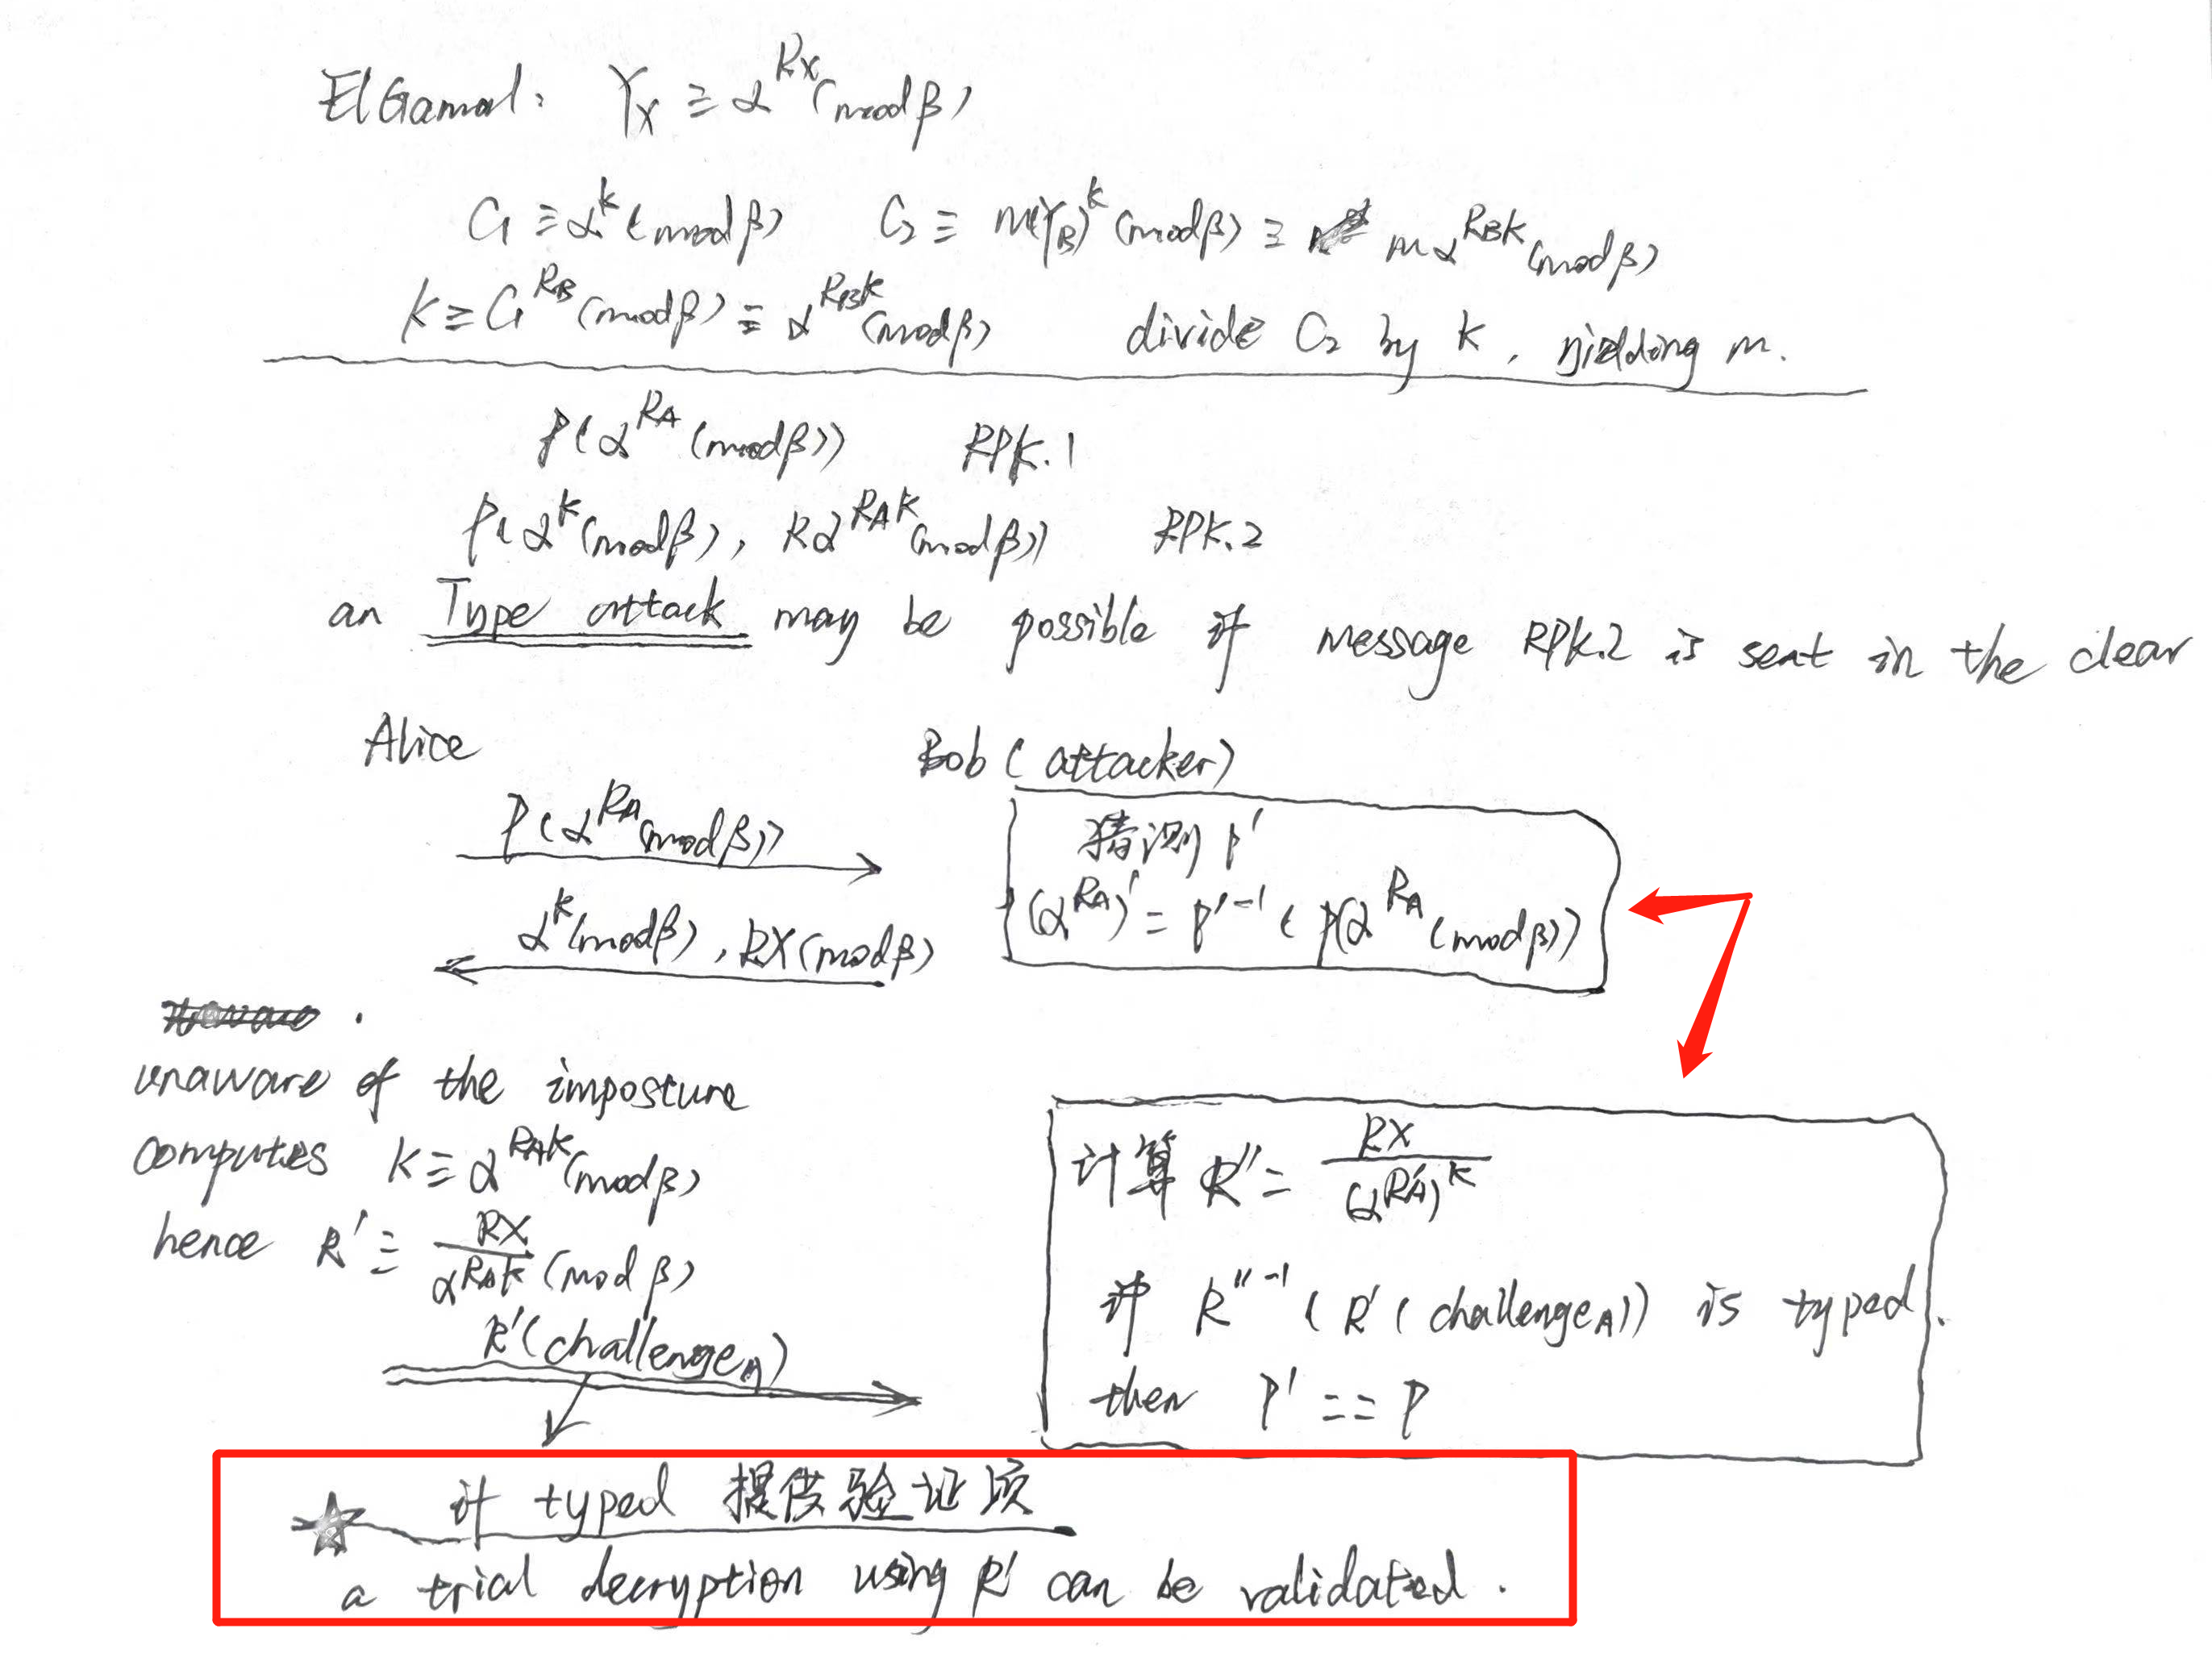 ElGamal: Yx ≡ α^Rx (mod β)
C1 ≡ α^k (mod β) C2 ≡ m(YB)^k (mod β) ≡ mα^RBk (mod β)
K ≡ C1^RB (mod β) ≡ α^RBk (mod β) divide C2 by K, yielding m.
P(α^RA (mod β)) RPK.1
P(α^k (mod β), Rα^RAk (mod β)) RPK.2
an Type attack may be possible if message RPK.2 is sent in the clear
Alice Bob (attacker)
P(α^RA (mod β))
猜测 P'
(α^RA)' = P'^-1 (P(α^RA (mod β))
α^k (mod β), RX (mod β)
unaware of the imposture
computes K ≡ α^RAk (mod β)
hence R' ≡ RX / α^RAk (mod β)
R'(challengeA)
计算 R'' = RX / (α^RA')^k
if R''^-1 (R'(challengeA)) is typed.
then P' == P
if typed 提供验证项
a trial decryption using R' can be validated.